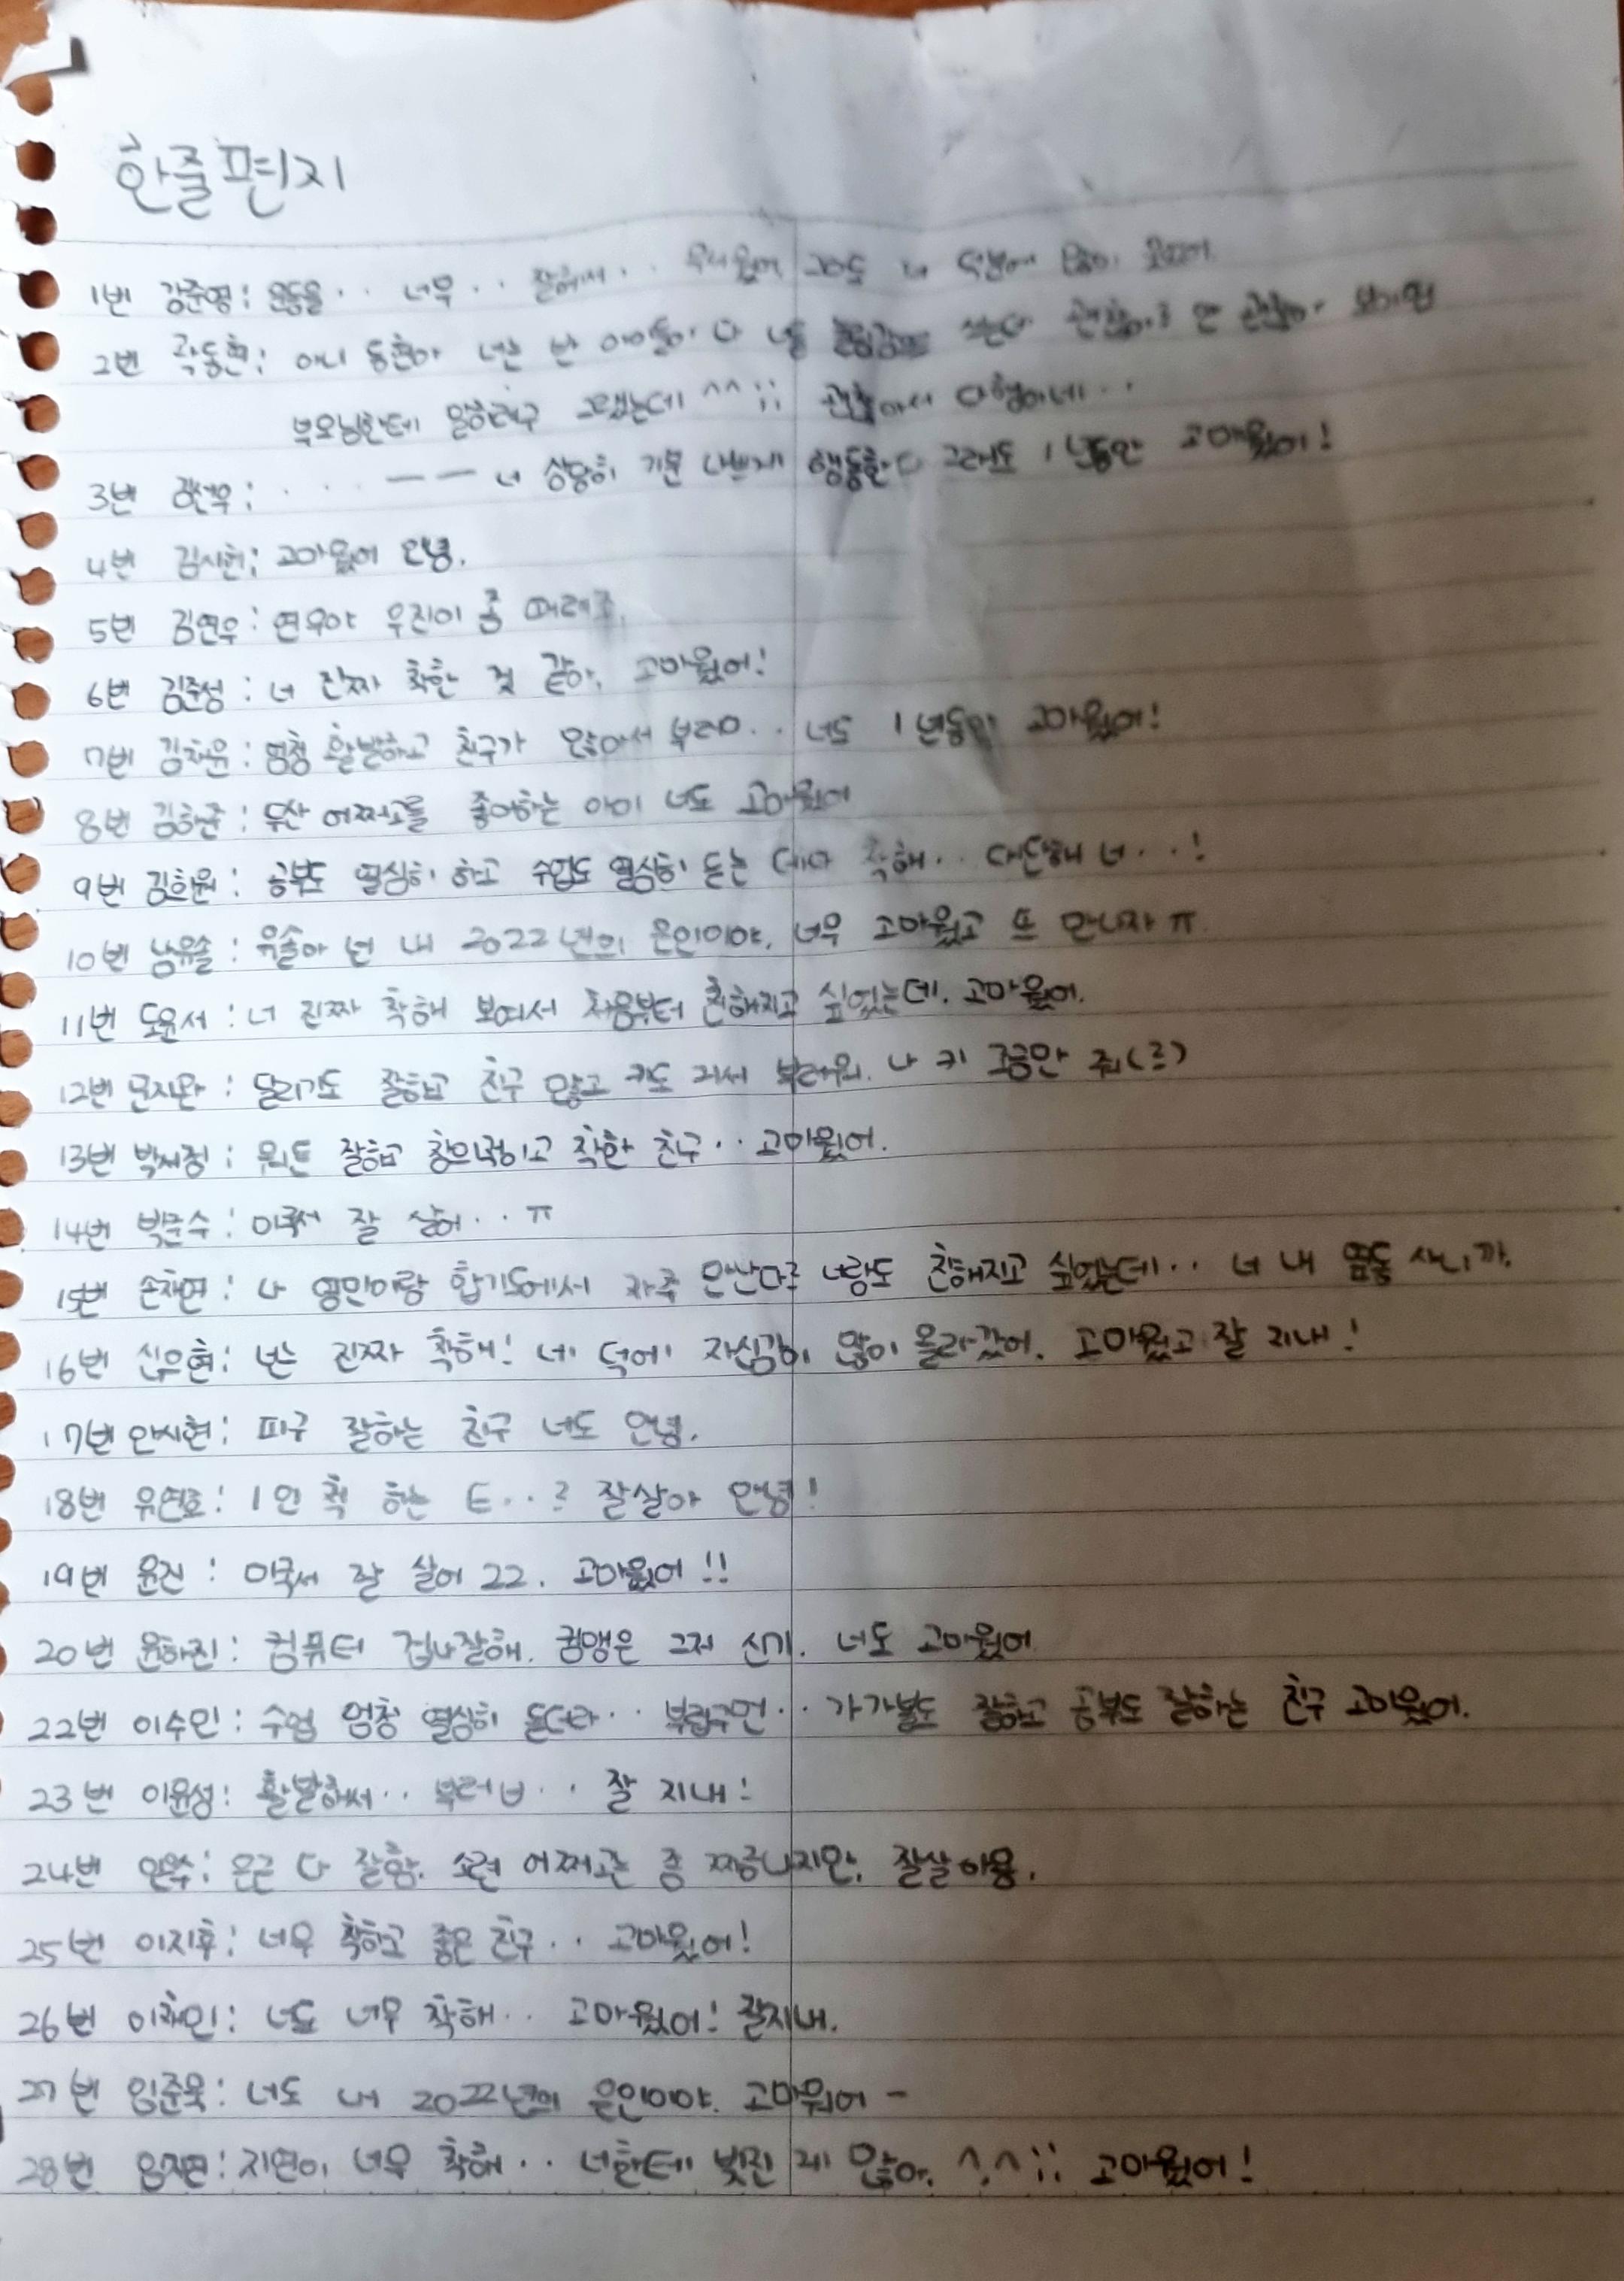 한줄편지
1번 강준영: 운동을.. 너무.. 잘해서.. 무서웠어 그래도 너 덕분에 많이 웃었어.
2번 곽동현: 아니 동현아 너는 반 애들이 다 널 쓰는데 괜찮아? 안 괜찮아 보이면
부모님한테 말하려구 그랬는데 ^^;; 괜찮아서 다행이네..
3번 : . . . ㅡㅡ 너 상당히 기분 나쁘게 행동한다 그래도 1년동안 고마웠어!
4번 김시헌: 고마웠어 안녕.
5번 김연우: 연우야 우진이 좀 때려줘.
6번 김준성: 너 진짜 착한 것 같아. 고마웠어!
7번 김채윤: 엄청 활발하고 친구가 많아서 부러워.. 너도 1년동안 고마웠어!
8번 김하준: 두산 어쩌고를 좋아하는 아이 너도 고마웠어
9번 김희원: 공부도 열심히 하고 수업도 열심히 듣는 데다 착해.. 대단해 너...!
10번 남유솔: 유솔아 넌 내 2022년의 은인이야. 너무 고마웠고 또 만나자 ㅠ
11번 도윤서: 너 진짜 착해 보여서 처음부터 친해지고 싶었는데. 고마웠어.
12번 문지환: 달리기도 잘하고 친구 많고 키도 커서 부러워. 나 키 조금만 줘(?)
13번 박서정: 뭐든 잘하고 창의적이고 착한 친구.. 고마웠어.
14번 박준수: 미국서 잘 살어.. ㅠ
15번 손채연: 나 영민이랑 합기도에서 자주 만난다? 너랑도 친해지고 싶었는데.. 너 내 띠동 사니까.
16번 신우현: 넌 진짜 착해! 네 덕에 자신감이 많이 올라갔어. 고마웠고 잘 지내!
17번 안시현: 피구 잘하는 친구 너도 안녕.
18번 유연호: I인 척 하는 E..? 잘살아 안녕!
19번 윤진: 미국서 잘 살어 22. 고마웠어!!
20번 윤하진: 컴퓨터 겁나잘해. 컴맹은 그저 신기. 너도 고마웠어
22번 이수민: 수업 엄청 열심히 듣더라.. 부럽구먼.. 가가볼도 잘하고 공부도 잘하는 친구 고마웠어.
23번 이윤성: 활발해서.. 부러ㅂ.. 잘 지내!
24번 : 은근 다 잘함. 소련 어쩌고는 좀 짜증나지만. 잘살아용.
25번 이지후: 너무 착하고 좋은 친구.. 고마웠어!
26번 이채인: 너도 너무 착해.. 고마웠어! 잘지내.
27번 임준욱: 너도 내 2022년의 은인이야. 고마워어 -
28번 임지연: 지연이 너무 착해.. 너한테 빚진 게 많아. ^.^;; 고마웠어!